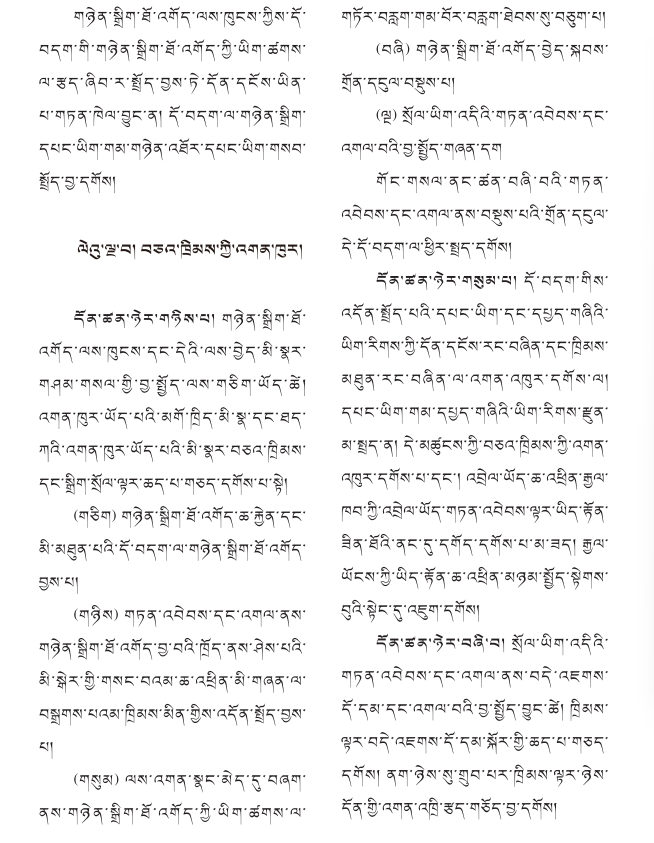 གཉེན་སྒྲིག་ཐོ་འགོད་ལས་ཁུངས་ཀྱིས་དོ་
བདག་གི་གཉེན་སྒྲིག་ཐོ་འགོད་ཀྱི་ཡིག་ཚགས་
ལ་རྩད་ཞིབ་ར་སྤྲོད་བྱས་ཏེ་དོན་དངོས་ཡིན་
པ་གཏན་ཁེལ་བྱུང་ན། དོ་བདག་ལ་གཉེན་སྒྲིག་
དཔང་ཡིག་གམ་གཉེན་འཐོར་དཔང་ཡིག་གསབ་
སྤྲོད་བྱ་དགོས།
ལེའུ་ལྔ་བ། བཅའ་ཁྲིམས་ཀྱི་འགན་ཁུར།
དོན་ཚན་ཉེར་གཉིས་པ། གཉེན་སྒྲིག་ཐོ་
འགོད་ལས་ཁུངས་དང་དེའི་ལས་བྱེད་མི་སྣར་
གཤམ་གསལ་གྱི་བྱ་སྤྱོད་ལས་གཅིག་ཡོད་ཚེ།
འགན་ཁུར་ཡོད་པའི་མགོ་ཁྲིད་མི་སྣ་དང་ཐད་
ཀའི་འགན་ཁུར་ཡོད་པའི་མི་སྣར་བཅའ་ཁྲིམས་
དང་སྒྲིག་སྲོལ་ལྟར་ཆད་པ་གཅད་དགོས་པ་སྟེ།
(གཅིག) གཉེན་སྒྲིག་ཐོ་འགོད་ཆ་རྐྱེན་དང་
མི་མཐུན་པའི་དོ་བདག་ལ་གཉེན་སྒྲིག་ཐོ་འགོད་
བྱས་པ།
(གཉིས) གཏན་འབེབས་དང་འགལ་ནས་
གཉེན་སྒྲིག་ཐོ་འགོད་བྱ་བའི་ཁྲོད་ནས་ཤེས་པའི་
མི་སྒེར་གྱི་གསང་བའམ་ཆ་འཕྲིན་མི་གཞན་ལ་
བསྒྲགས་པའམ་ཁྲིམས་མིན་གྱིས་འདོན་སྤྲོད་བྱས་
པ།
(གསུམ) ལས་འགན་སྣང་མེད་དུ་བཞག་
ནས་གཉེན་སྒྲིག་ཐོ་འགོད་ཀྱི་ཡིག་ཚགས་ལ་
གཏོར་བརླག་གམ་བོར་བརླག་ཐེབས་སུ་བཅུག་པ།
(བཞི) གཉེན་སྒྲིག་ཐོ་འགོད་བྱེད་སྐབས་
གྲོན་དངུལ་བསྡུས་པ།
(ལྔ) སྲོལ་ཡིག་འདིའི་གཏན་འབེབས་དང་
འགལ་བའི་བྱ་སྤྱོད་གཞན་དག
གོང་གསལ་ནང་ཚན་བཞི་བའི་གཏན་
འབེབས་དང་འགལ་ནས་བསྡུས་པའི་གྲོན་དངུལ་
དེ་དོ་བདག་ལ་ཕྱིར་སྤྲད་དགོས།
དོན་ཚན་ཉེར་གསུམ་པ། དོ་བདག་གིས་
འདོན་སྤྲོད་པའི་དཔང་ཡིག་དང་དཔྱད་གཞིའི་
ཡིག་རིགས་ཀྱི་དོན་དངོས་རང་བཞིན་དང་ཁྲིམས་
མཐུན་རང་བཞིན་ལ་འགན་འཁུར་དགོས་ལ།
དཔང་ཡིག་གམ་དཔྱད་གཞིའི་ཡིག་རིགས་རྫུན་
མ་སྤྲད་ན། དེ་མཚུངས་ཀྱི་བཅའ་ཁྲིམས་ཀྱི་འགན་
འཁུར་དགོས་པ་དང་། འབྲེལ་ཡོད་ཆ་འཕྲིན་རྒྱལ་
ཁབ་ཀྱི་འབྲེལ་ཡོད་གཏན་འབེབས་ལྟར་ཡིད་རྟོན་
ཟིན་ཐོའི་ནང་དུ་དགོད་དགོས་པ་མ་ཟད། རྒྱལ་
ཡོངས་ཀྱི་ཡིད་རྟོན་ཆ་འཕྲིན་མཉམ་སྤྱོད་སྟེགས་
བུའི་སྟེང་དུ་འཇུག་དགོས།
དོན་ཚན་ཉེར་བཞི་བ། སྲོལ་ཡིག་འདིའི་
གཏན་འབེབས་དང་འགལ་ནས་བདེ་འཇགས་
དོ་དམ་དང་འགལ་བའི་བྱ་སྤྱོད་བྱུང་ཚེ། ཁྲིམས་
ལྟར་བདེ་འཇགས་དོ་དམ་སྐོར་གྱི་ཆད་པ་གཅད་
དགོས། ནག་ཉེས་སུ་གྲུབ་པར་ཁྲིམས་ལྟར་ཉེས་
དོན་གྱི་འགན་འཁྲི་རྩད་གཅོད་བྱ་དགོས།